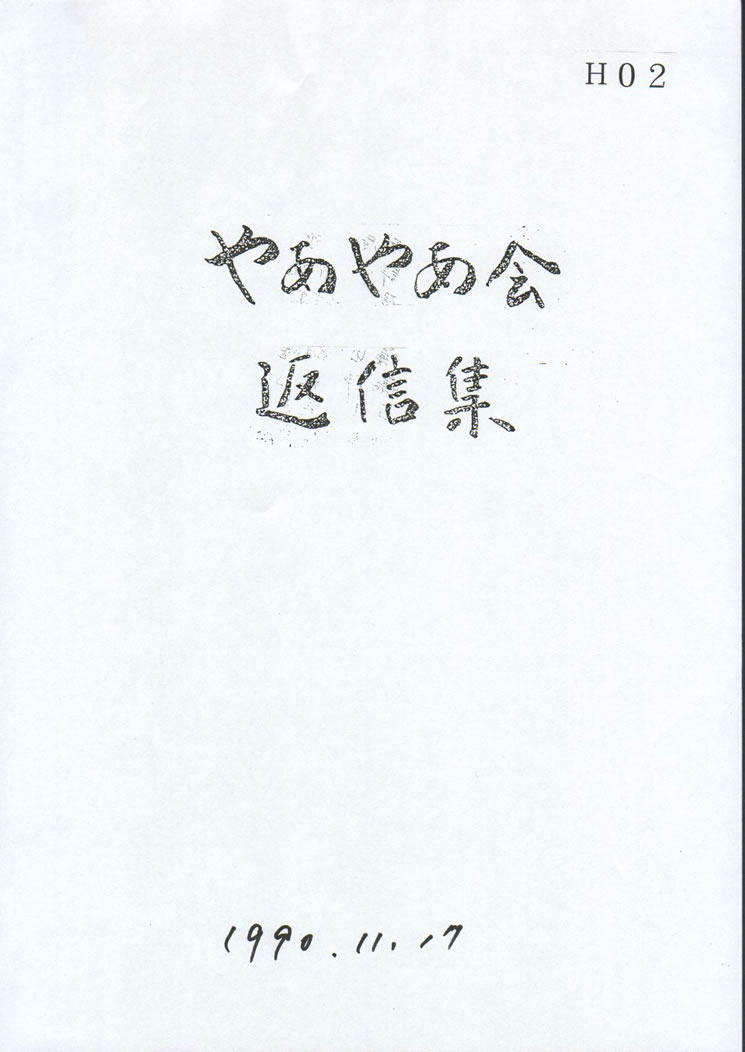 H02
やあやあ会
返信集
1990.11.17